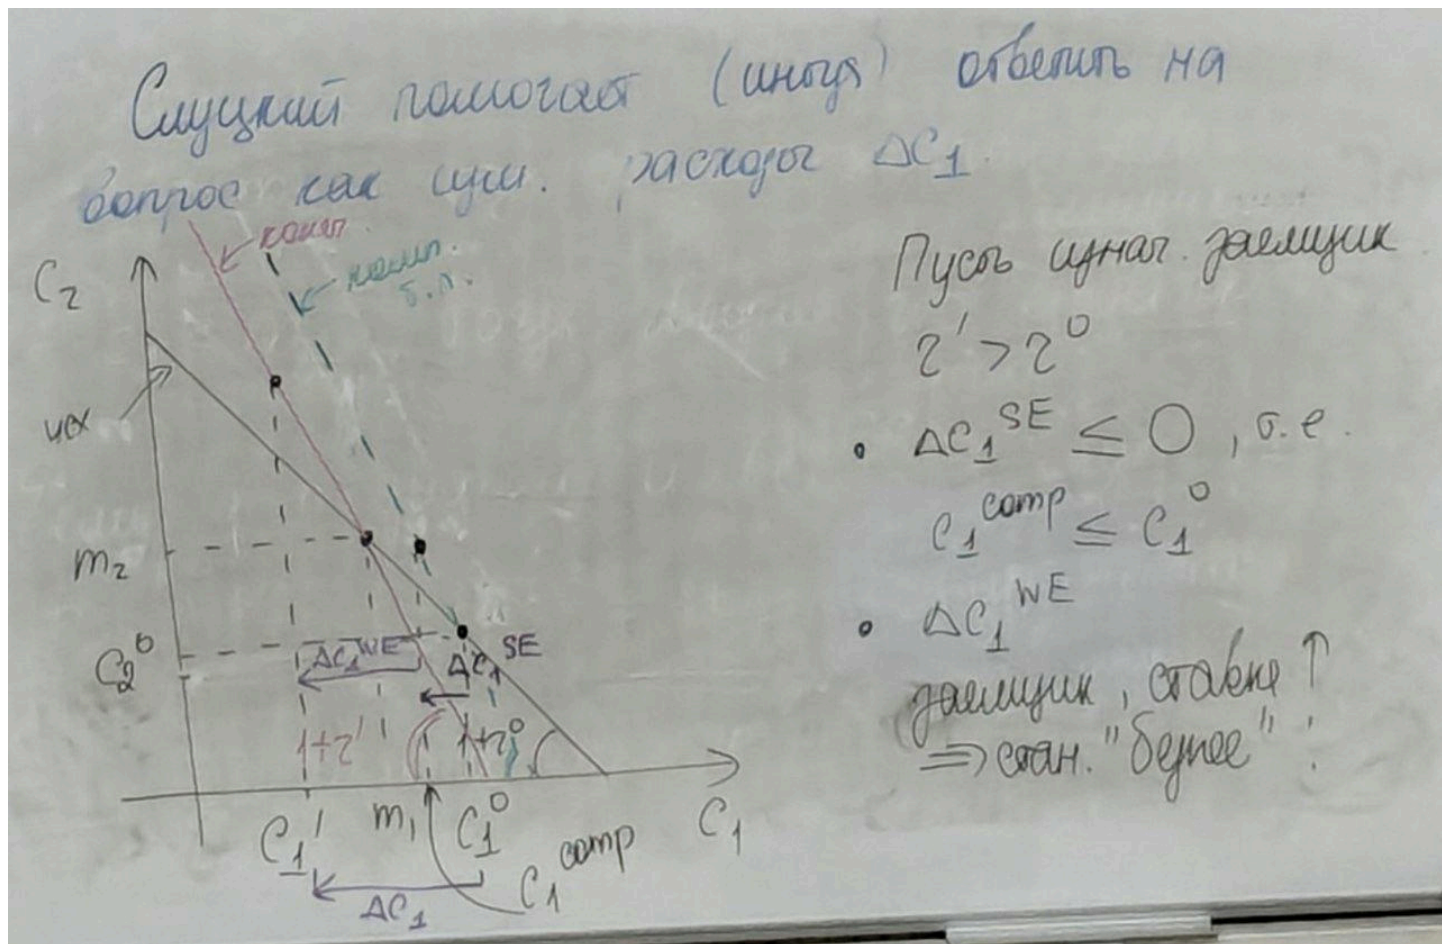 Слуцкий помогает (иногда) ответить на
вопрос как изм. расходы ΔC₁.
конеч.
комп.
б.л.
C₂
исх
m₂
C₂⁰
ΔC₁ᵂᴱ
ΔC₁ˢᴱ
1+r'
1+r⁰
C₁'
m₁
C₁⁰
C₁ᶜᵒᵐᵖ
C₁
ΔC₁
Пусть изнач. заемщик
r' > r⁰
• ΔC₁ˢᴱ ≤ 0, т.е.
C₁ᶜᵒᵐᵖ ≤ C₁⁰
• ΔC₁ᵂᴱ
заемщик, ставка ↑
⇒ стан. "беднее" !